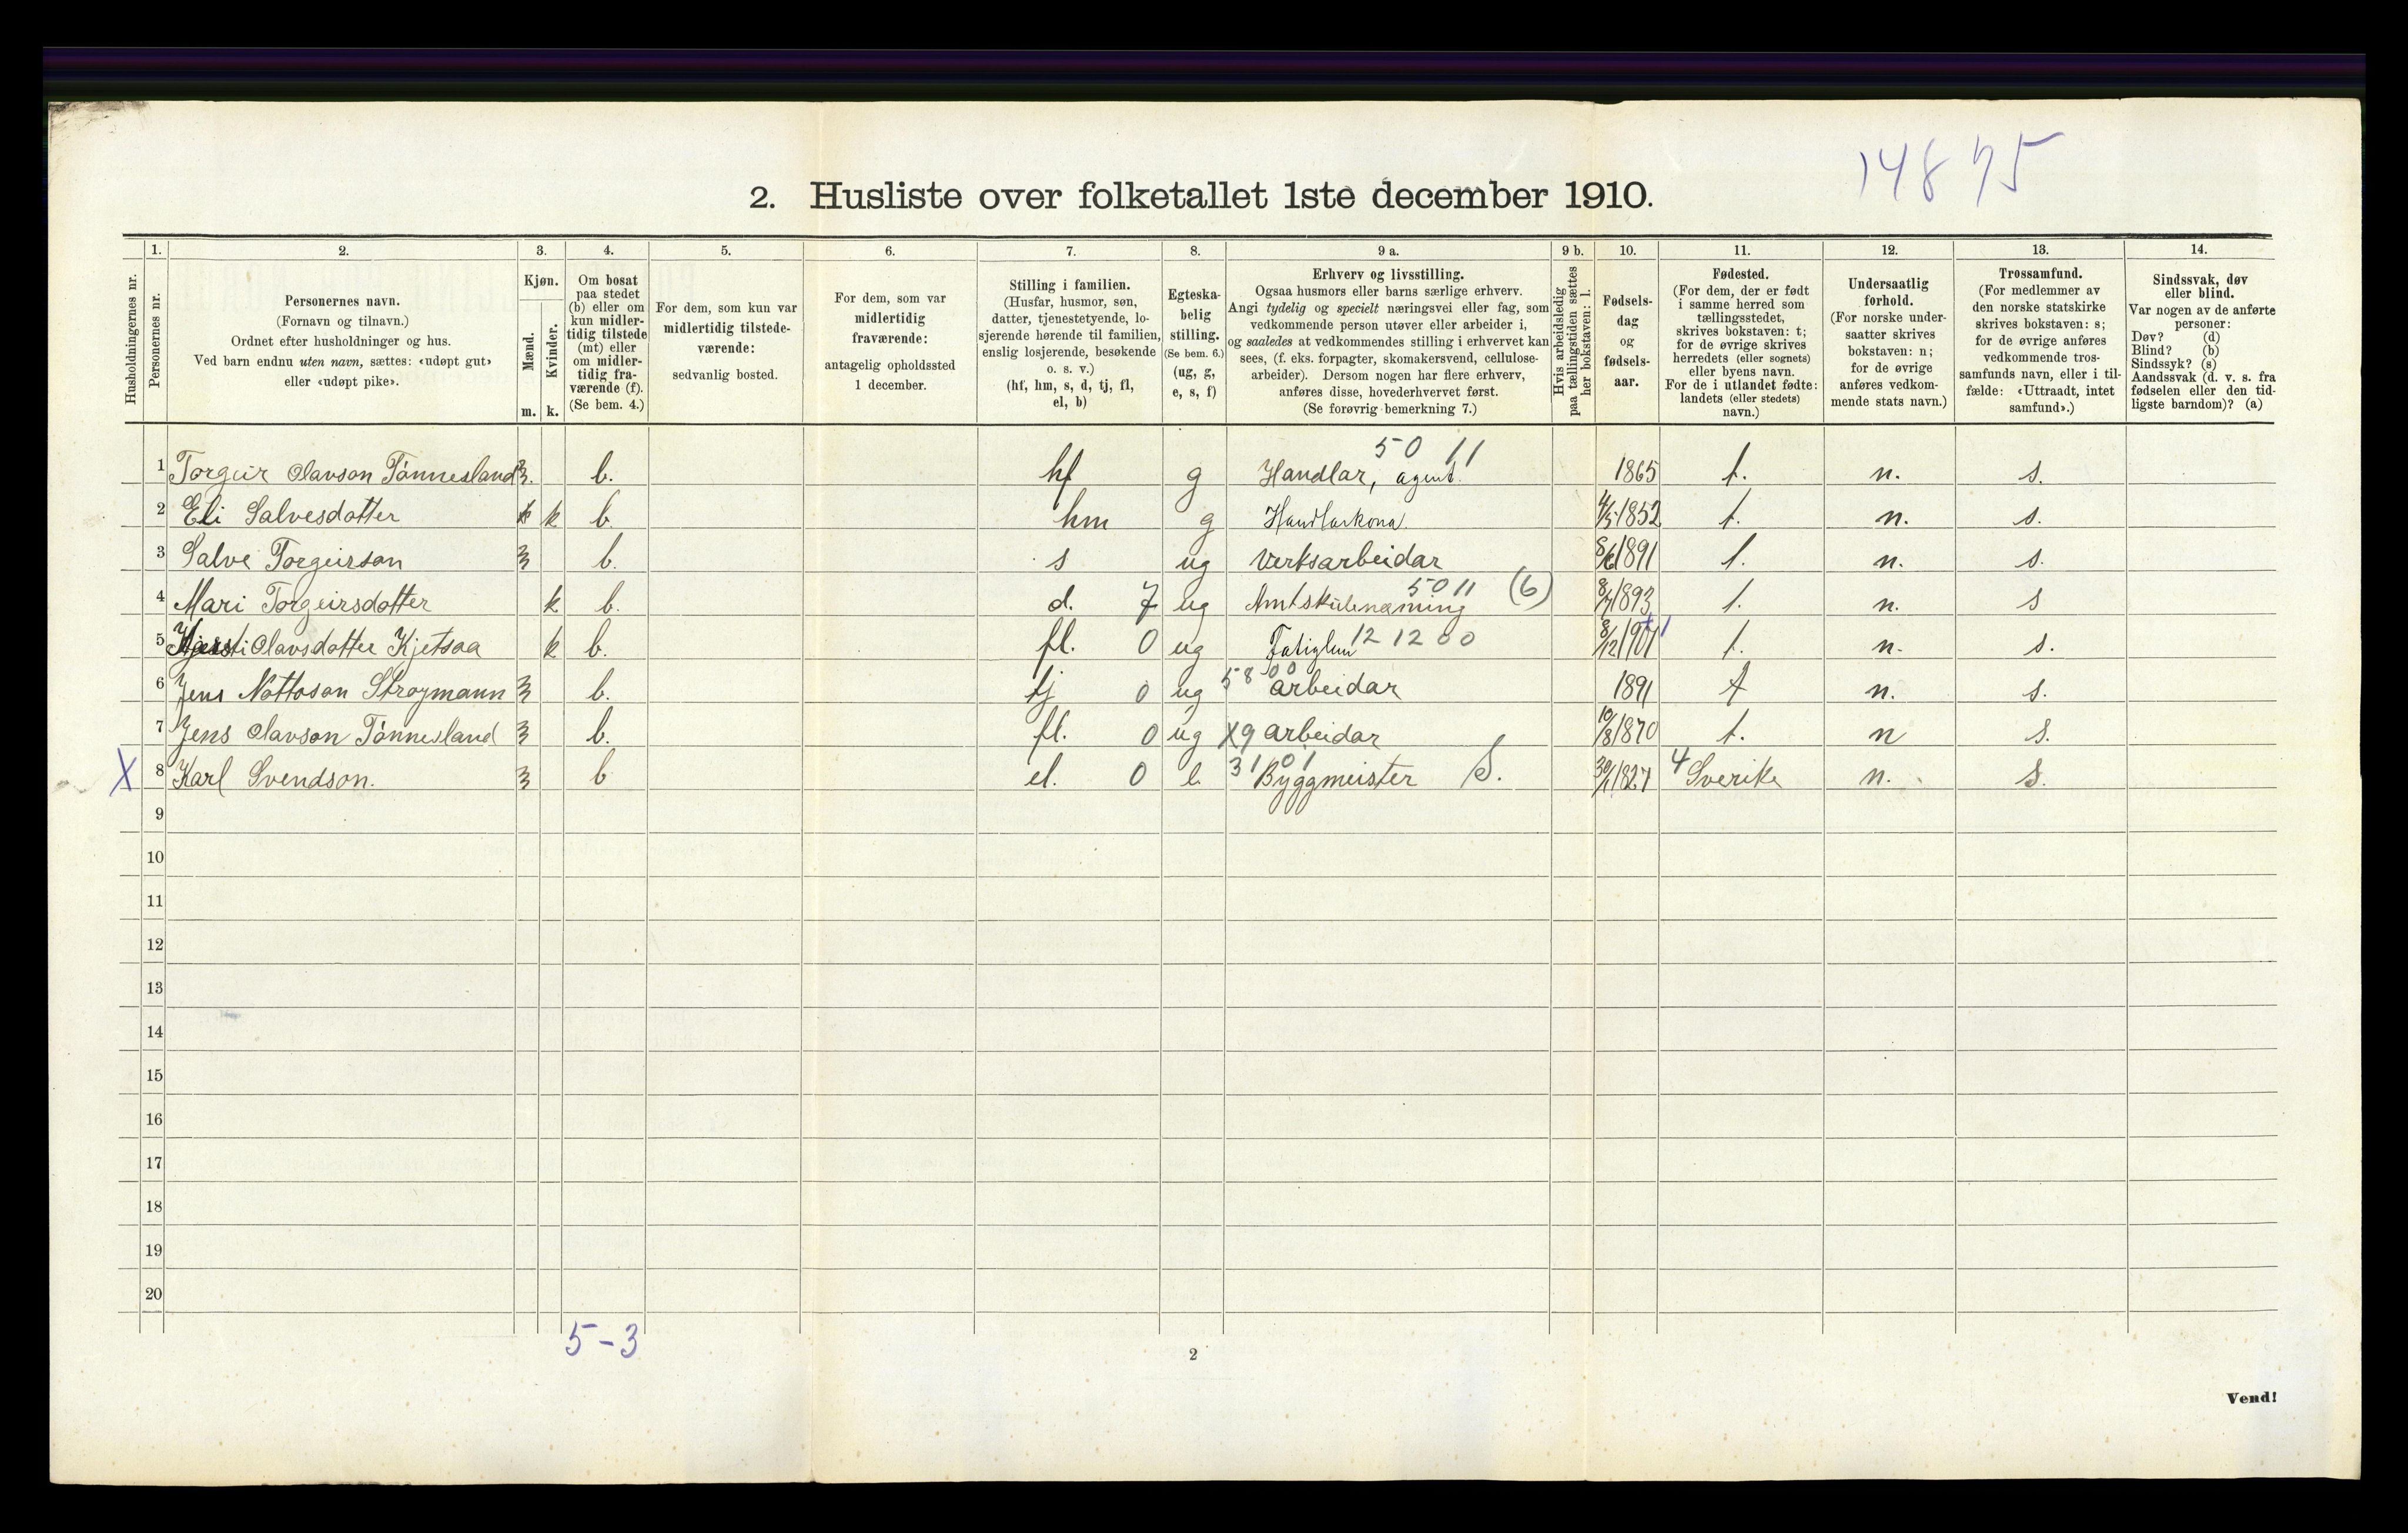 14875
2. Husliste over folketallet 1ste december 1910.
Husholdningernes nr.
1.
Personernes nr.
2.
Personernes navn.
(Fornavn og tilnavn.)
Ordnet efter husholdninger og hus.
Ved barn endnu uten navn, sættes: «udøpt gut»
eller «udøpt pike».
3.
Kjøn.
Mænd.
Kvinder.
m. k.
4.
Om bosat
paa stedet
(b) eller om
kun midler-
tidig tilstede
(mt) eller
om midler-
tidig fra-
værende (f).
(Se bem. 4.)
5.
For dem, som kun var
midlertidig tilstede-
værende:
sedvanlig bosted.
6.
For dem, som var
midlertidig
fraværende:
antagelig opholdssted
1 december.
7.
Stilling i familien.
(Husfar, husmor, søn,
datter, tjenestetyende, lo-
sjerende hørende til familien,
enslig losjerende, besøkende
o. s. v.)
(hf, hm, s, d, tj, fl,
el, b)
8.
Egteska-
belig
stilling.
(Se bem. 6.)
(ug, g,
e, s, f)
9 a.
Erhverv og livsstilling.
Ogsaa husmors eller barns særlige erhverv.
Angi tydelig og specielt næringsvei eller fag, som
vedkommende person utøver eller arbeider i,
og saaledes at vedkommendes stilling i erhvervet kan
sees, (f. eks. forpagter, skomakersvend, cellulose-
arbeider). Dersom nogen har flere erhverv,
anføres disse, hovederhvervet først.
(Se forøvrig bemerkning 7.)
9 b.
Hvis arbeidsledig
paa tællingstiden sættes
her bokstaven: l.
10.
Fødsels-
dag
og
fødsels-
aar.
11.
Fødested.
(For dem, der er født
i samme herred som
tællingsstedet,
skrives bokstaven: t;
for de øvrige skrives
herredets (eller sognets)
eller byens navn.
For de i utlandet fødte:
landets (eller stedets)
navn.)
12.
Undersaatlig
forhold.
(For norske under-
saatter skrives
bokstaven: n;
for de øvrige
anføres vedkom-
mende stats navn.)
13.
Trossamfund.
(For medlemmer av
den norske statskirke
skrives bokstaven: s;
for de øvrige anføres
vedkommende tros-
samfunds navn, eller i til-
fælde: «Uttraadt, intet
samfund».)
14.
Sindssvak, døv
eller blind.
Var nogen av de anførte
personer:
Døv? (d)
Blind? (b)
Sindssyk? (s)
Aandssvak (d. v. s. fra
fødselen eller den tid-
ligste barndom)? (a)
50 11
1 Torgeir Olavson Tønnesland m. b. hf g Handlar, agent. 1865 t. n. s.
2 Eli Salvesdotter k b. hm g Handlarkona 4/5 1852 t. n. s.
3 Salve Torgeirson m b. s ug Verksarbeidar 8/6 1891 t. n. s.
5011 (6)
4 Mari Torgeirsdotter k b. d. 7 ug Amtskulenæming 8/7 1893 t. n. s
5 Kjersti Olavsdotter Kjetsaa k b. fl. 0 ug Fatiglem 12 12 00 8/12 1901 t. n. s.
6 Jens Nottoson Strøymann m b. tj 0 ug 58 00 arbeidar 1891 t n. s.
7 Jens Olavson Tønnesland m b. fl. 0 ug X9 arbeidar 10/8 1870 t. n s.
X 8 Karl Svendson. m b el. 0 e 31 01 Byggmeister S. 30/1 1827 4 Sverike n. s.
9
10
11
12
13
14
15
16
17
18
19
20
5-3
2
Vend!